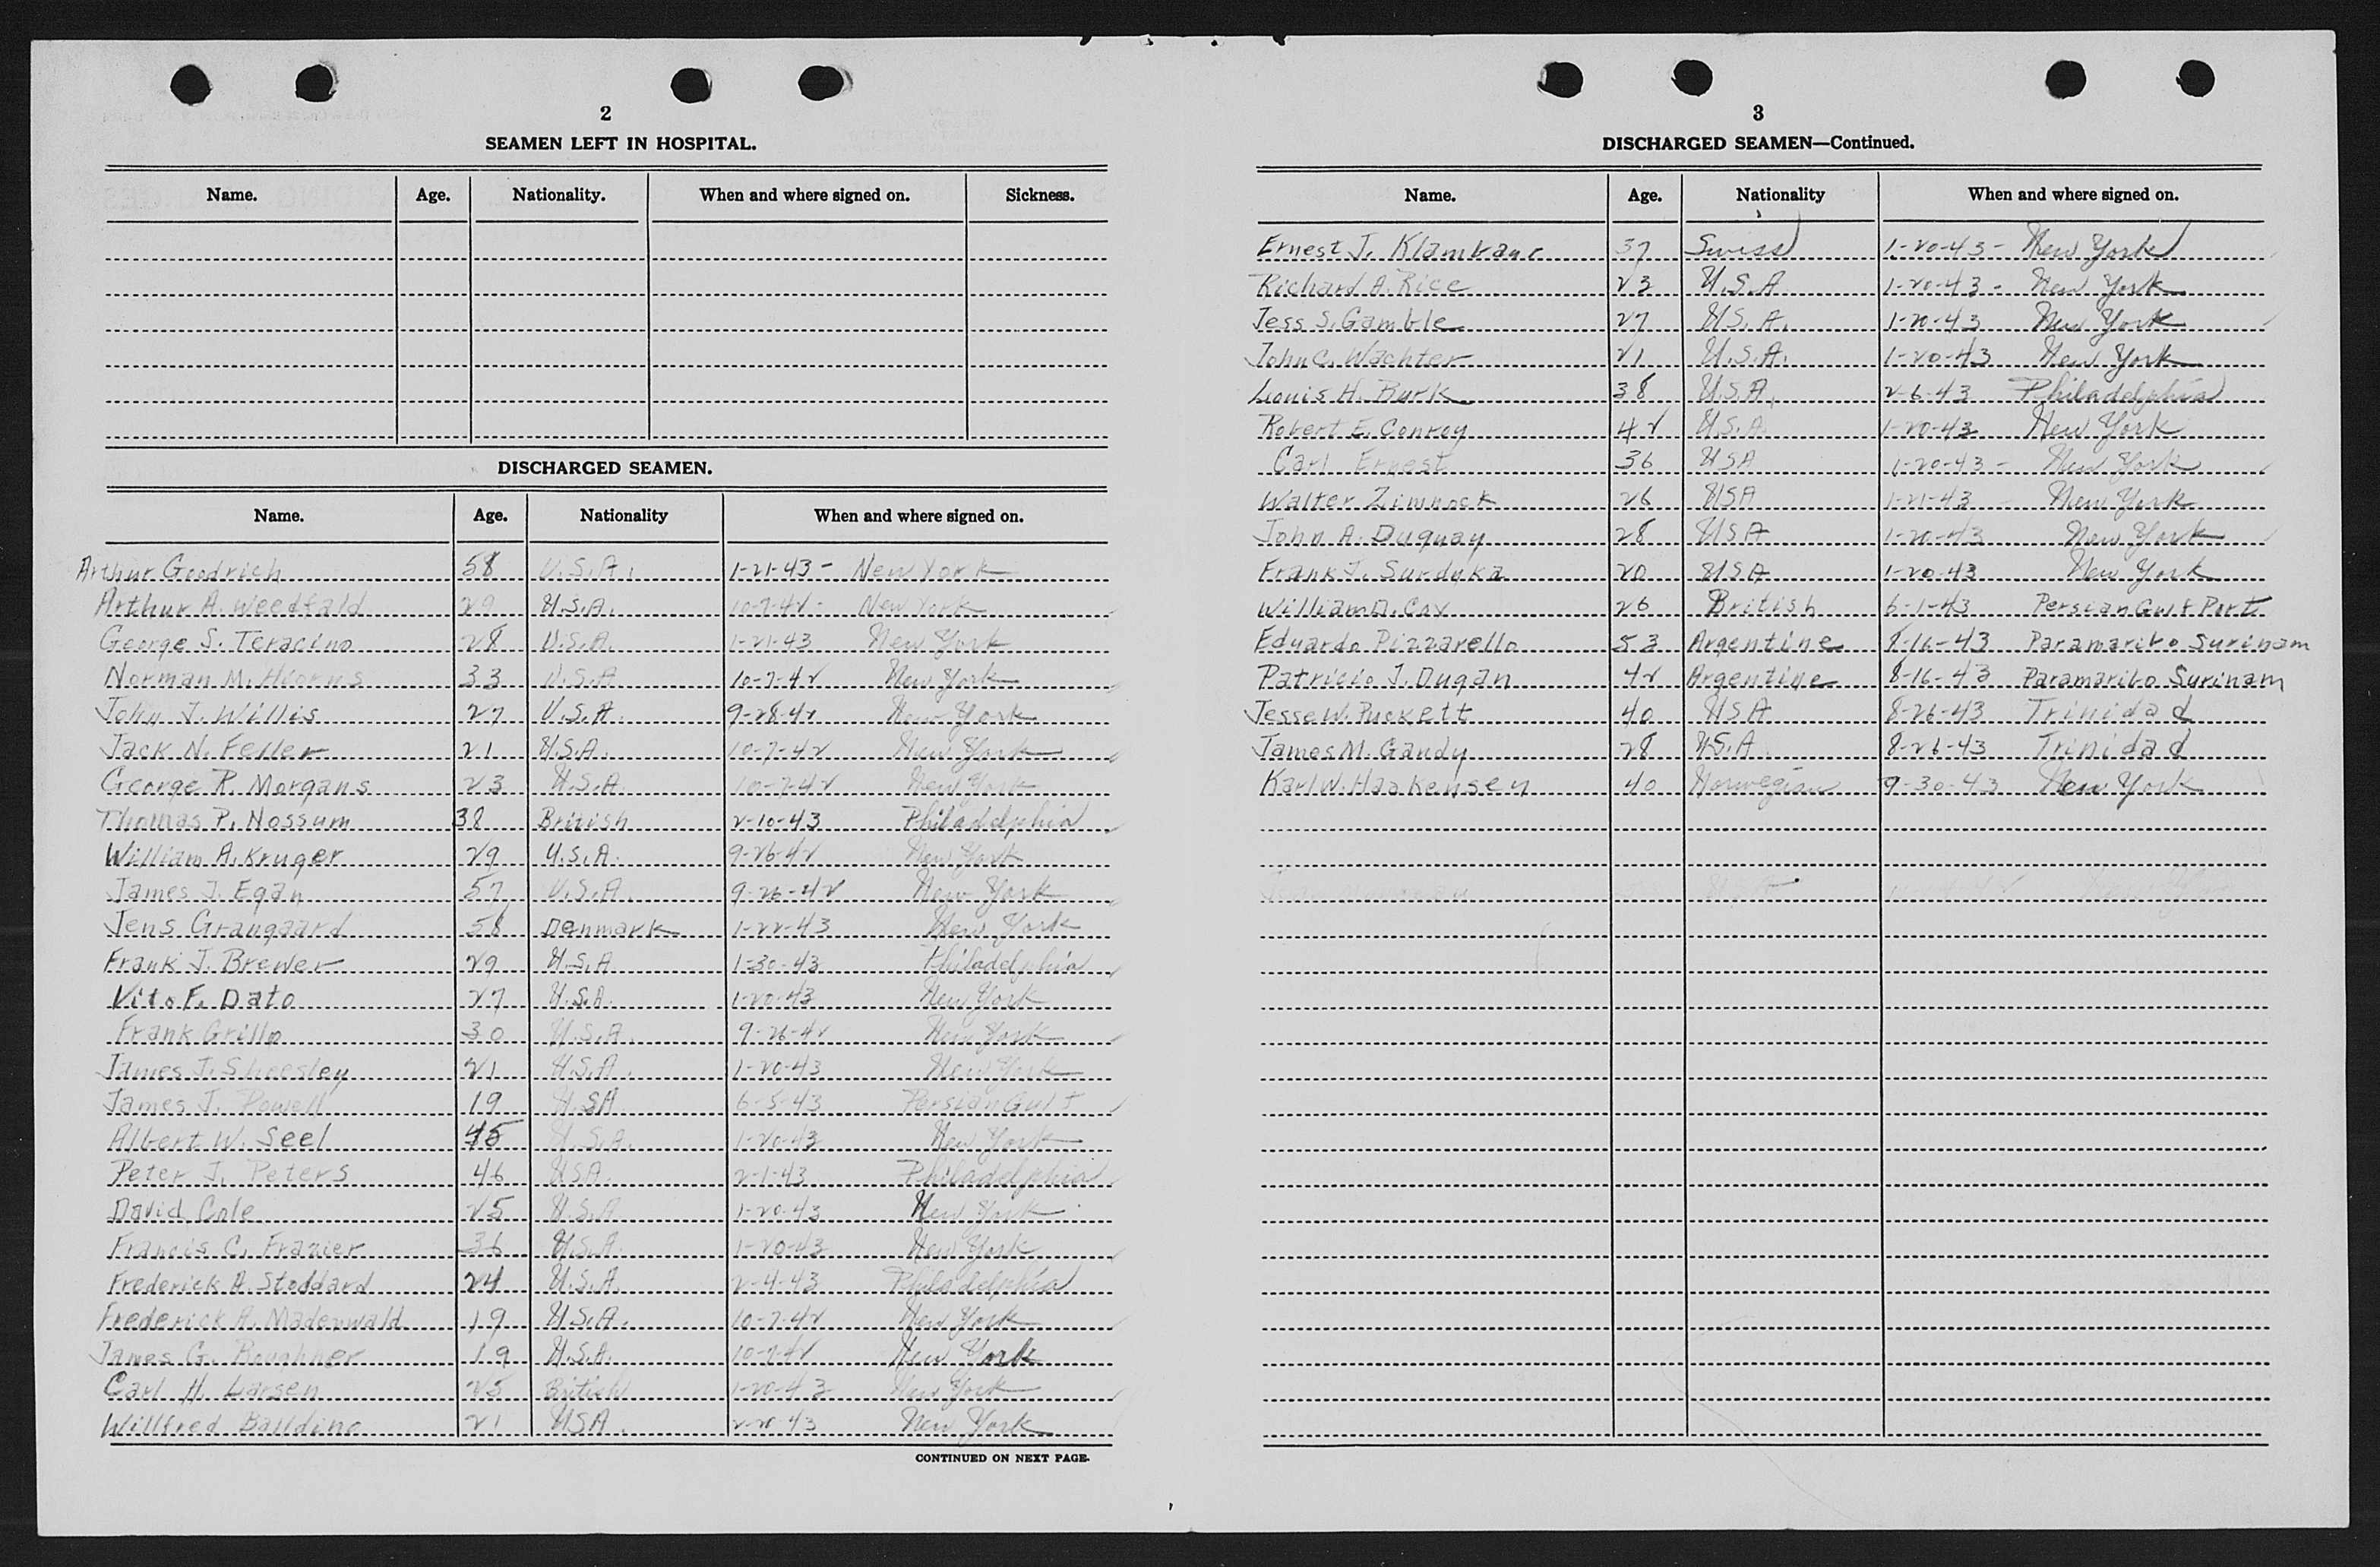 2
SEAMEN LEFT IN HOSPITAL.
Name. Age. Nationality. When and where signed on. Sickness.
DISCHARGED SEAMEN.
Name. Age. Nationality When and where signed on.
Arthur Goodrich 58 U.S.A. 1-21-43 - New York
Arthur A. Weedfald 29 U.S.A. 10-7-42 - New York
George S. Teracino 28 U.S.A. 1-21-43 New York
Norman M. 33 U.S.A 10-7-42 New York
John J. Willis 27 U.S.A. 9-28-42 New York
Jack N. Feller 21 U.S.A. 10-7-42 New York
George R. Morgans 23 U.S.A. 10-7-42 New York
Thomas P. Nossum 38 British 2-10-43 Philadelphia
William A. Kruger 29 U.S.A. 9-26-42 New York
James J. Egan 57 U.S.A. 9-26-42 New York
Jens Graugaard 58 Denmark 1-22-43 New York
Frank J. Brewer 29 U.S.A. 1-30-43 Philadelphia
Vito F. Dato 27 U.S.A. 1-20-43 New York
Frank Grillo 30 U.S.A. 9-26-42 New York
James J. Sheesley 21 U.S.A. 1-20-43 New York
James J. Powell 19 U.SA 6-5-43 Persian Gulf
Albert W. Seel 45 U.S.A. 1-20-43 New York
Peter J. Peters 46 USA. 2-1-43 Philadelphia
David Cole 25 U.S.A 1-20-43 New York
Francis C. Frazier 36 U.S.A. 1-20-43 New York
Frederick A. Stoddard 24 U.S.A. 2-4-43 Philadelphia
Frederick A. Maderwald 19 U.S.A. 10-7-42 New York
James G. Boughner 19 U.S.A. 10-7-42 New York
Carl H. Larsen 25 British 1-20-43 New York
Willfred Ballding 21 USA. 2-20-43 New York
CONTINUED ON NEXT PAGE.
3
DISCHARGED SEAMEN—Continued.
Name. Age. Nationality When and where signed on.
Ernest J. 37 Swiss 1-20-43 - New York
Richard A. Rice 23 U.S.A 1-20-43 - New York
Jess S. Gamble 27 U.S.A. 1-20-43 New York
John C. Wachter 21 U.S.A. 1-20-43 New York
Louis H. Burk 38 U.S.A. 2-6-43 Philadelphia
Robert E. Conroy 42 U.S.A. 1-20-43 New York
Carl Ernest 36 USA 1-20-43 - New York
Walter Zimnock 26 USA 1-21-43 New York
John A. Duquay 28 USA 1-20-43 New York
Frank J. Surdyka 20 USA 1-20-43 New York
William D. Cox 26 British 6-1-43 Persian Gulf Port
Eduardo Pizzarello 53 Argentine 8-16-43 Paramaribo Surinam
Patricio J. Dugan 42 Argentine 8-16-43 Paramaribo Surinam
Jesse W. Puckett 40 USA 8-26-43 Trinidad
James M. Gandy 28 U.S.A 8-26-43 Trinidad
Karl W. Haakensen 40 Norwegian 9-30-43 New York